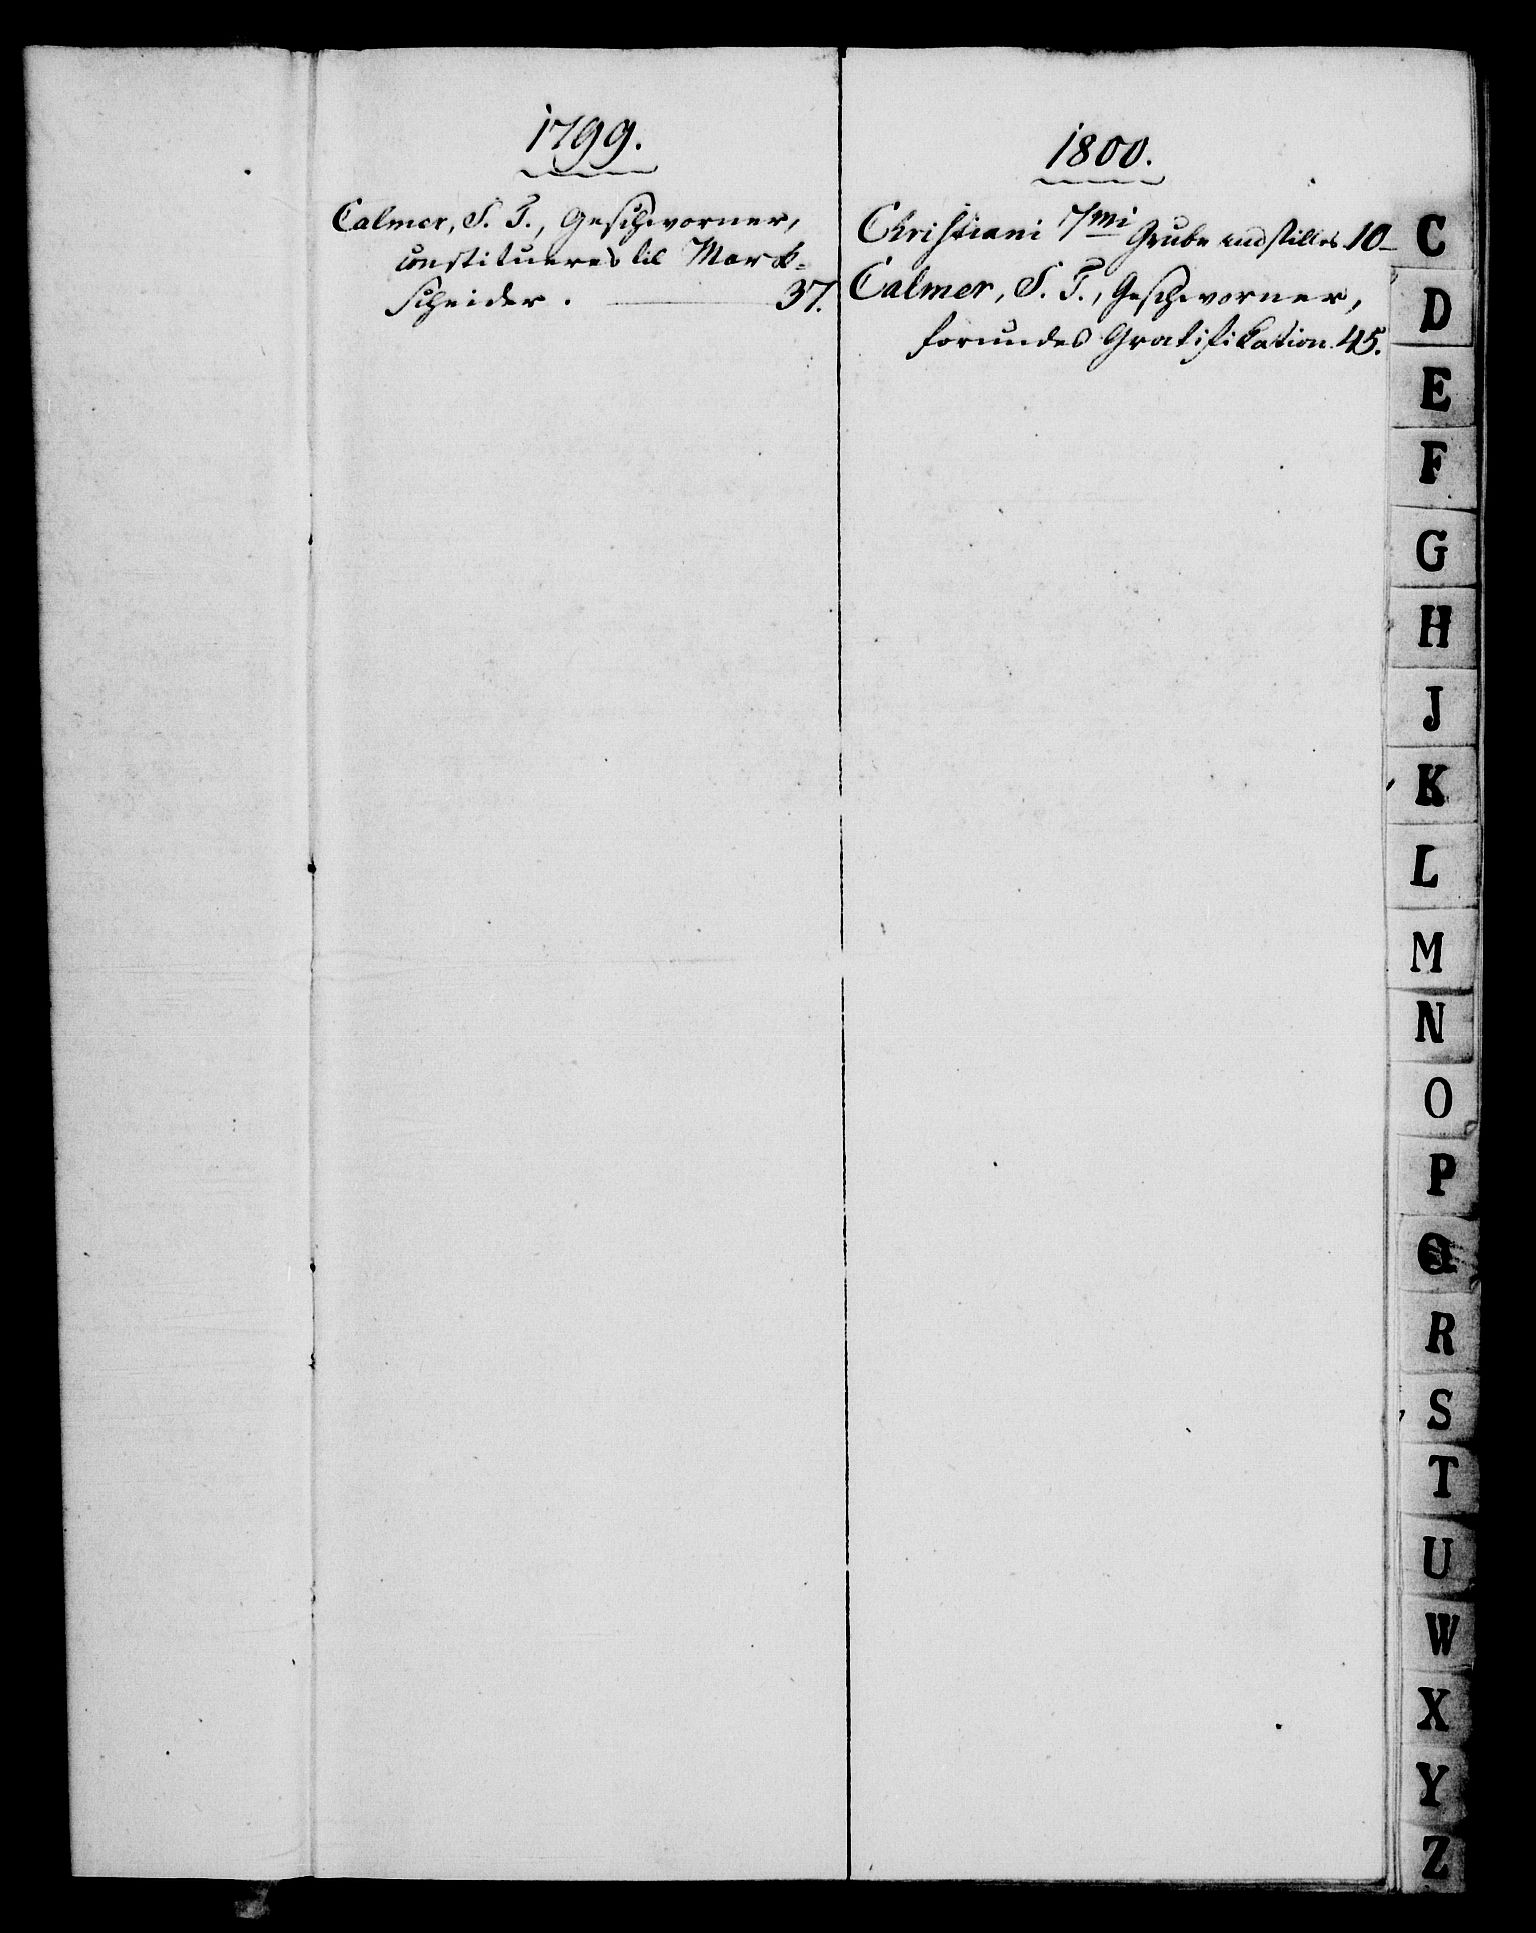 1799.
Calmer, S. T., Geschworner,
constitueres til Mark-
scheider. 37.
1800.
Christiani 7mi Grube indstilles 10
Calmer, S. T., Geschworner,
forundes Gratifikation. 45.
C
D
E
F
G
H
J
K
L
M
N
O
P
Q
R
S
T
U
W
X
Y
Z